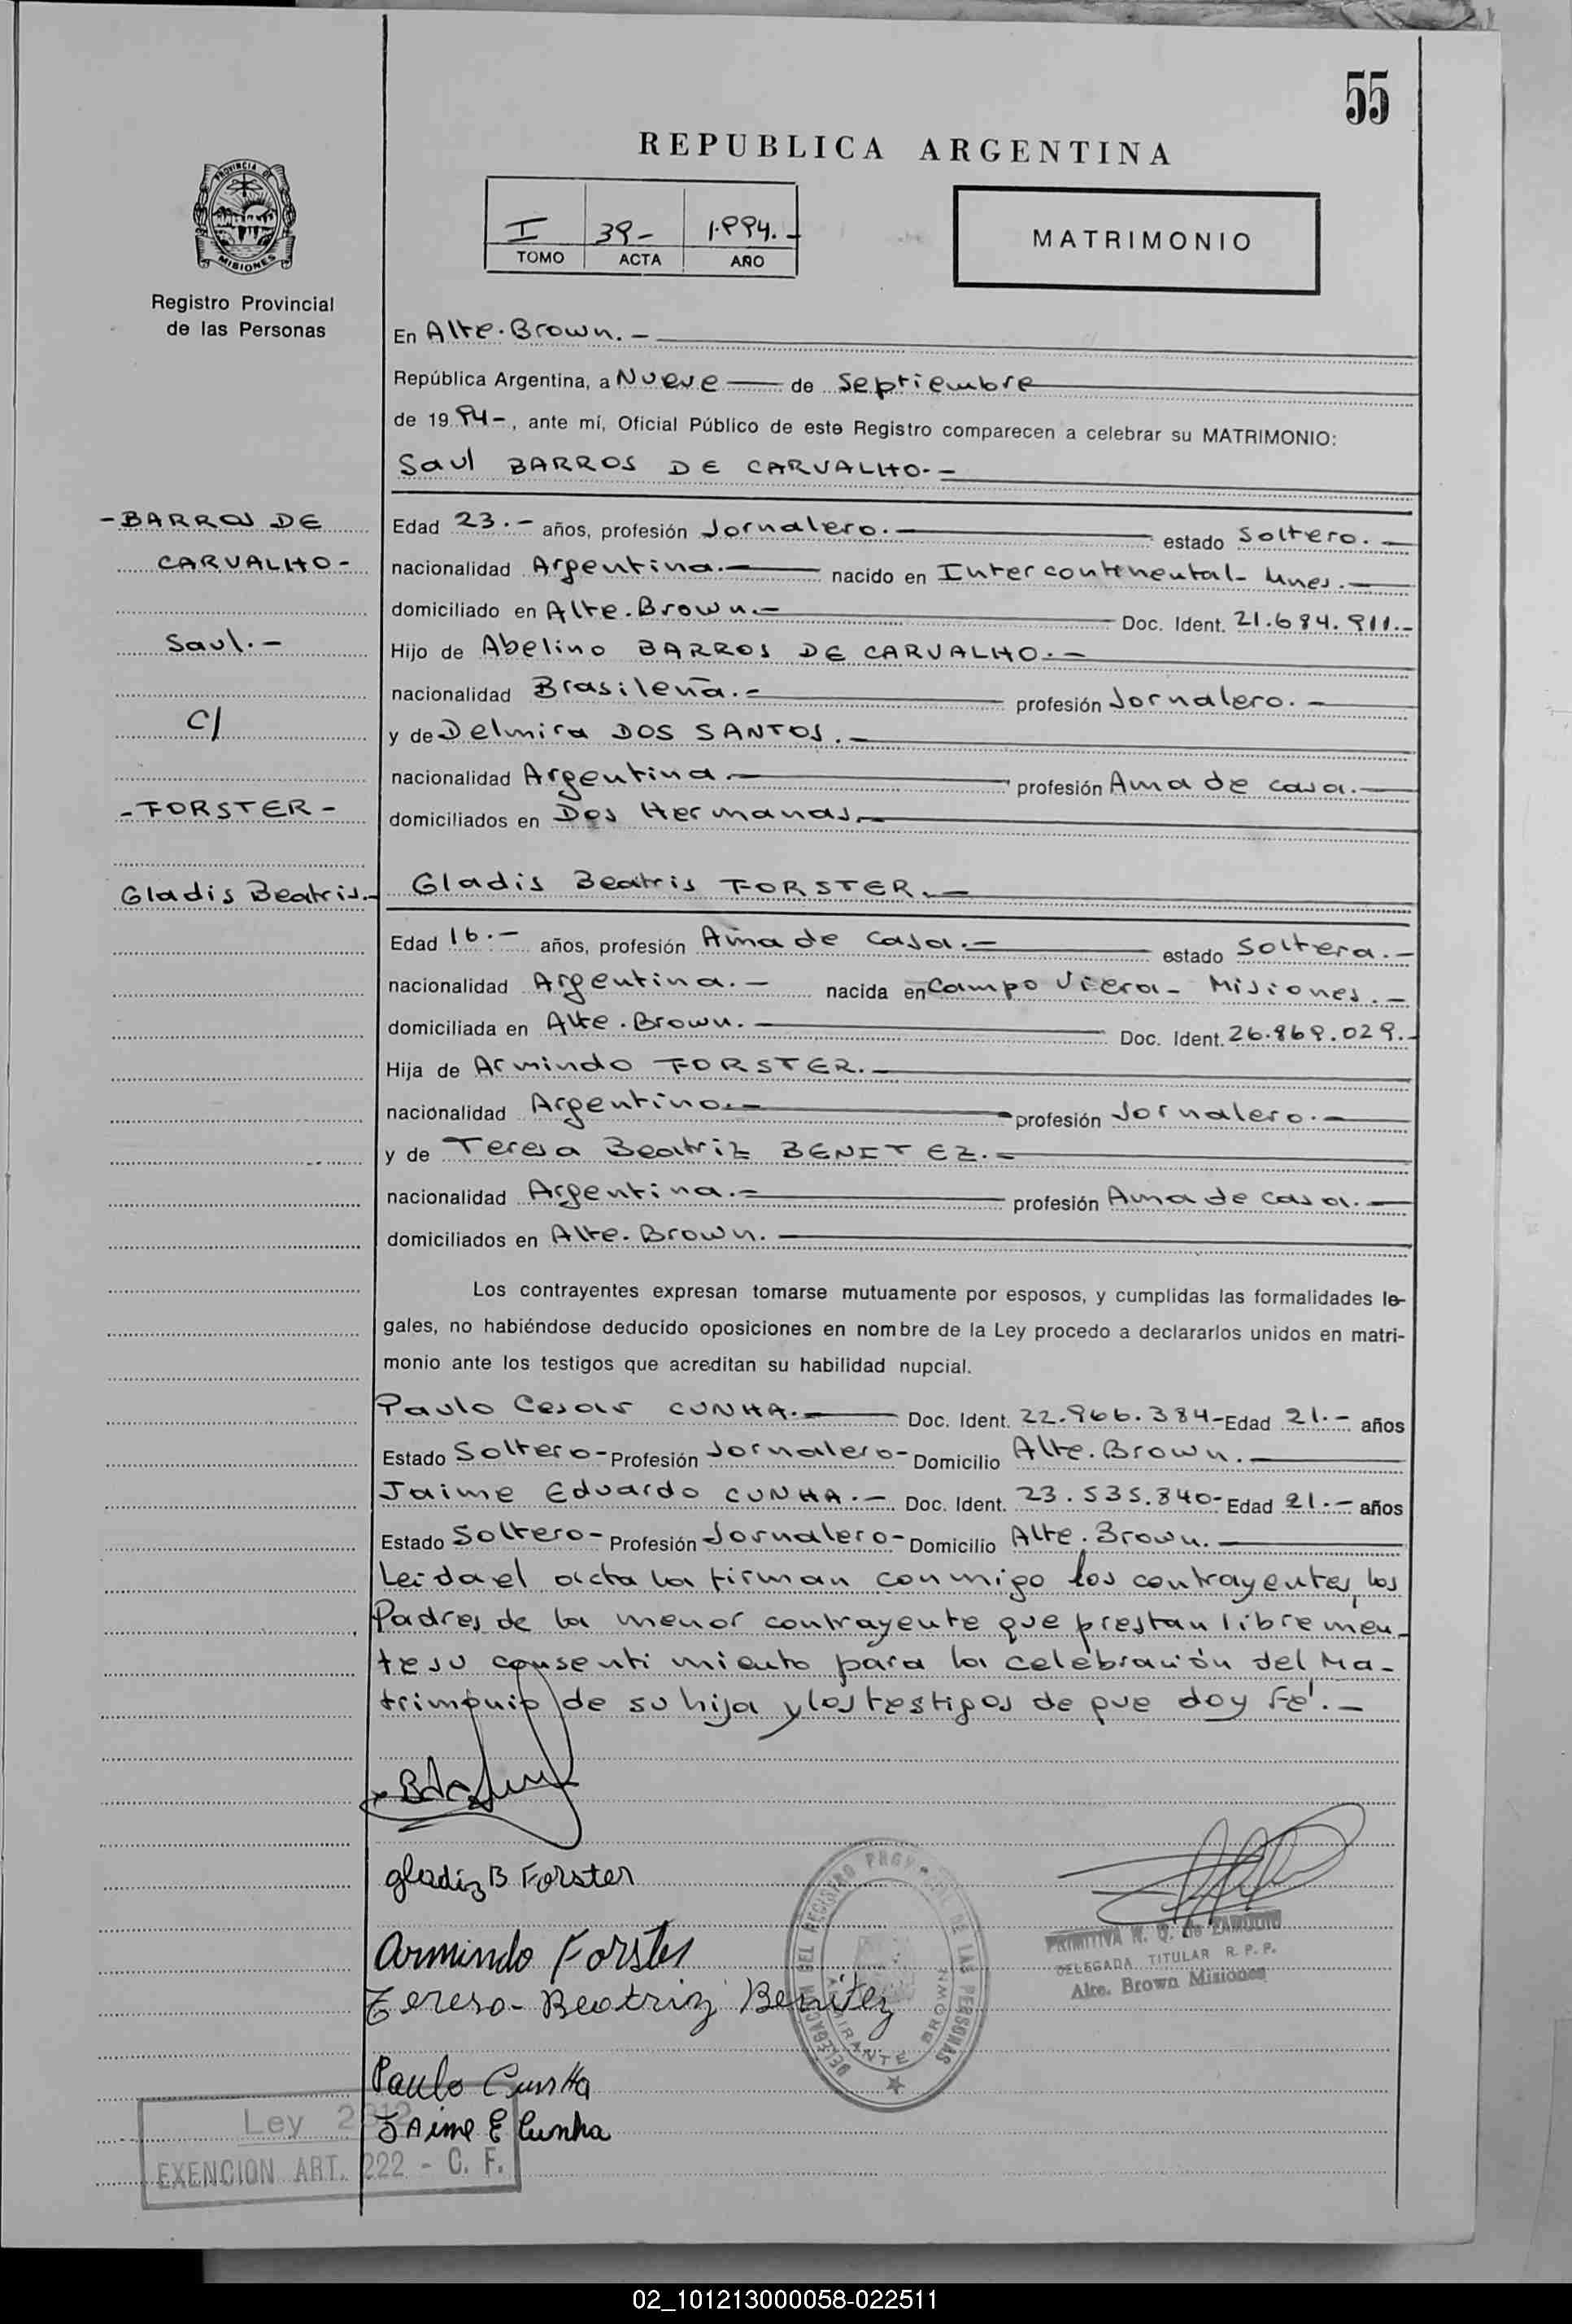 55
REPUBLICA ARGENTINA
PROVINCIA DE
MISIONES
Registro Provincial
de las Personas
I 39- 1.994.-
TOMO ACTA AÑO
MATRIMONIO
En Alte. Brown.-
República Argentina, a Nueve de Septiembre
de 1994-, ante mí, Oficial Público de este Registro comparecen a celebrar su MATRIMONIO:
Saul BARROS DE CARVALHO.-
-BARROS DE
CARVALHO-
Saul.-
C/
-FORSTER-
Gladis Beatris.-
Edad 23.- años, profesión Jornalero.- estado Soltero.-
nacionalidad Argentina.- nacido en Intercontinental- Mnes.-
domiciliado en Alte. Brown.- Doc. Ident. 21.684.911.-
Hijo de Abelino BARROS DE CARVALHO.-
nacionalidad Brasileña.- profesión Jornalero.-
y de Delmira DOS SANTOS.-
nacionalidad Argentina.- profesión Ama de casa.-
domiciliados en Dos Hermanas.-
Gladis Beatris FORSTER.-
Edad 16.- años, profesión Ama de casa.- estado Soltera.-
nacionalidad Argentina.- nacida en Campo Viera- Misiones.-
domiciliada en Alte. Brown.- Doc. Ident. 26.869.029.-
Hija de Armindo FORSTER.-
nacionalidad Argentino.- profesión Jornalero.-
y de Teresa Beatriz BENITEZ.-
nacionalidad Argentina.- profesión Ama de casa.-
domiciliados en Alte. Brown.-
Los contrayentes expresan tomarse mutuamente por esposos, y cumplidas las formalidades le-
gales, no habiéndose deducido oposiciones en nombre de la Ley procedo a declararlos unidos en matri-
monio ante los testigos que acreditan su habilidad nupcial.
Paulo Cesar CUNHA.- Doc. Ident. 22.966.384- Edad 21.- años
Estado Soltero- Profesión Jornalero- Domicilio Alte. Brown.-
Jaime Eduardo CUNHA.- Doc. Ident. 23.535.840- Edad 21.- años
Estado Soltero- Profesión Jornalero- Domicilio Alte. Brown.-
Leida el acta la firman conmigo los contrayentes, los
Padres de la menor contrayente que prestan libremen-
te su consentimiento para la celebración del Ma-
trimonio de su hija y los testigos de que doy fé.-
gladiz B Forster
Armindo Forster
Teresa- Beatriz Benitez
Paulo Cunha
JAime E Cunha
DELEGACION DEL REGISTRO PROVINCIAL DE LAS PERSONAS
ALMIRANTE BROWN
PRIMITIVA N. Q. de ZAMUDIO
DELEGADA TITULAR R. P. P.
Alte. Brown Misiones
Ley 2912
EXENCION ART. 222 - C. F.
02_101213000058-022511